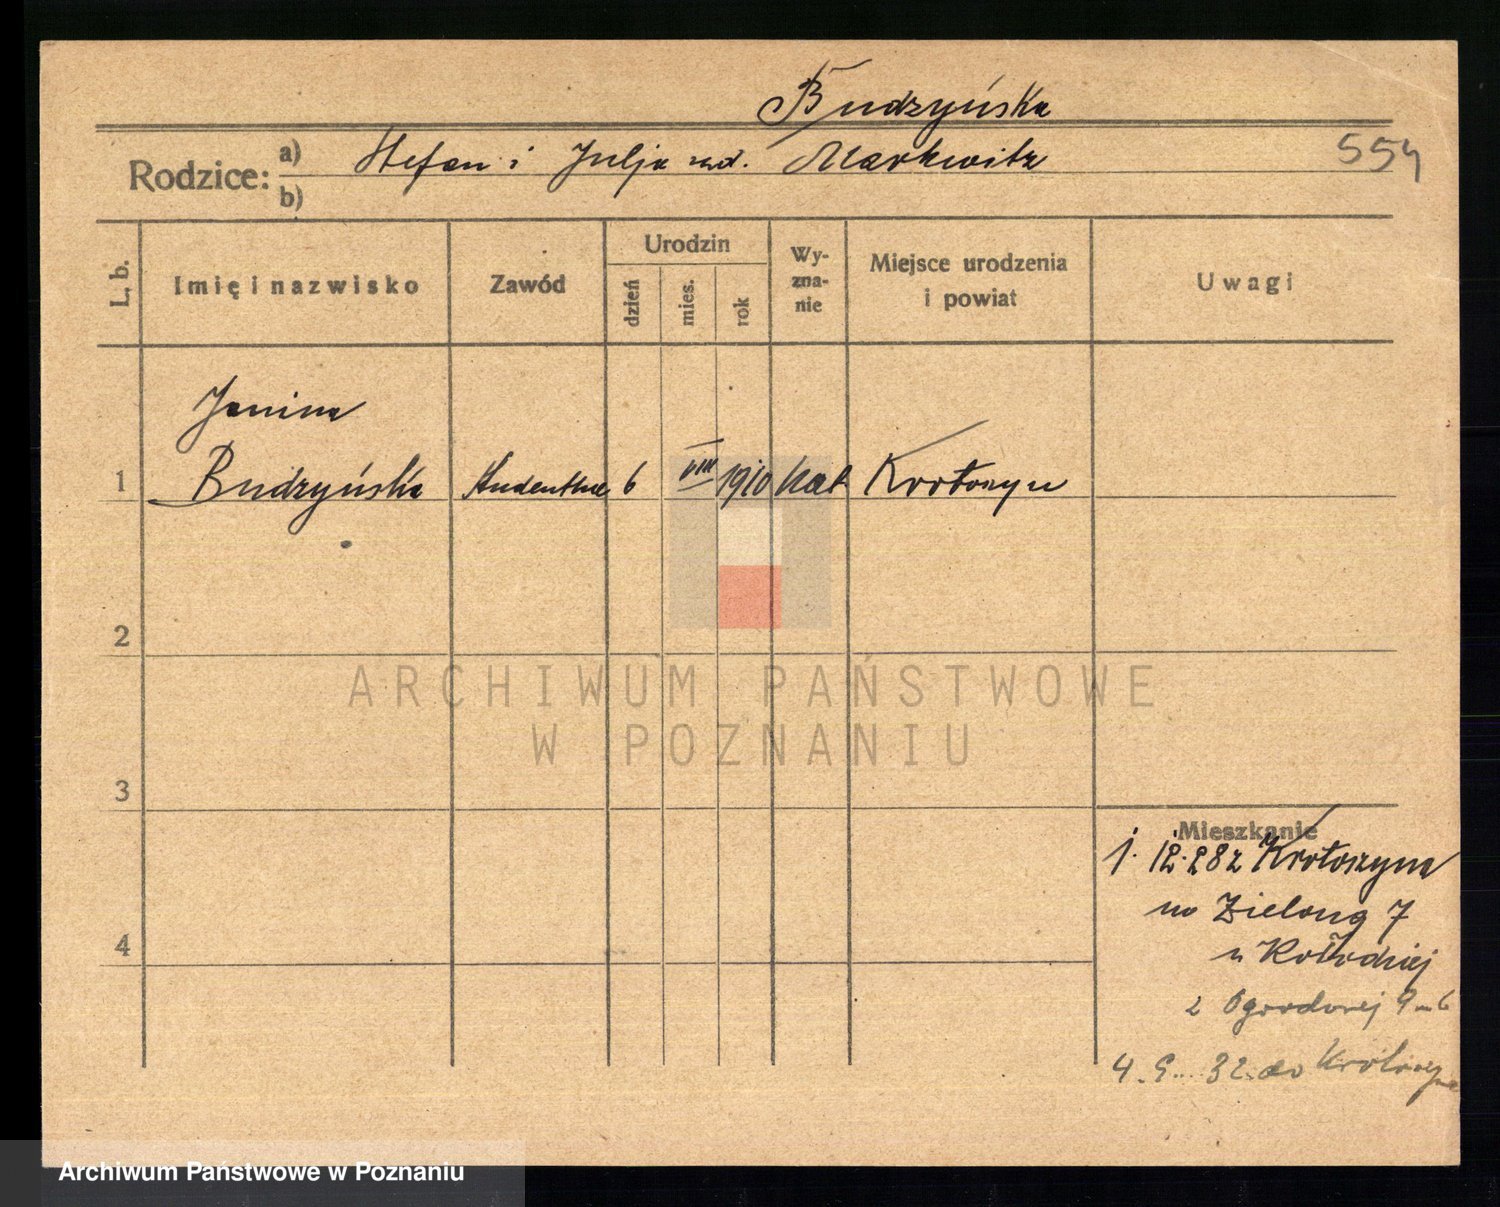 Budzyńska
554
Rodzice: a) Stefan i Julja zd. Markwitz
b)
L. b.
Imię i nazwisko
Zawód
Urodzin
dzień
mies.
rok
Wy-
zna-
nie
Miejsce urodzenia
i powiat
Uwagi
Janina
1 Budzyńska Studentka 6 VIII 1910 kat Krotoszyn
2
ARCHIWUM PAŃSTWOWE
W POZNANIU
3
Mieszkanie
1. 12. 28 z Krotoszyna
na Zieloną 7
u Kołodziej
z Ogrodowej 9 m 6
4. 32 do Krotoszyna
4
Archiwum Państwowe w Poznaniu